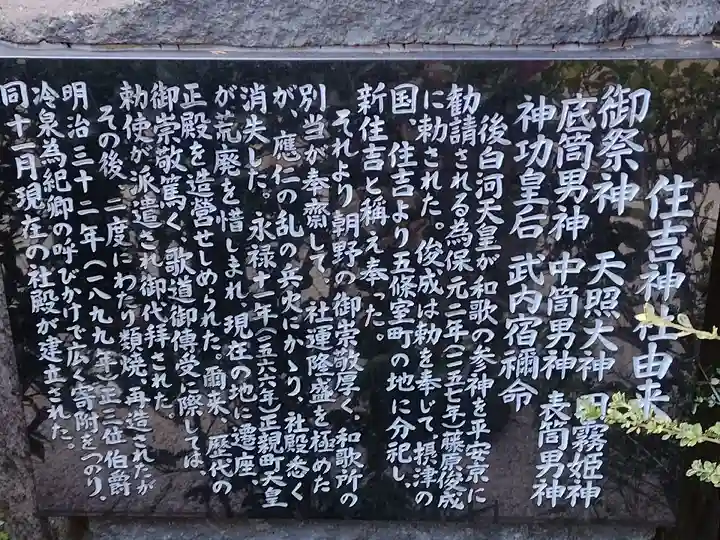 住吉神社由来
御祭神 天照大神 田霧姫神
底筒男神 中筒男神 表筒男神
神功皇后 武内宿禰命
後白河天皇が和歌の参神を平安京に
勧請される為保元二年(一一五七年)藤原俊成
に勅された。俊成は勅を奉じて摂津の
国、住吉より五條室町の地に分祀し、
新住吉と稱え奉った。
それより朝野の御崇敬厚く和歌所の
別当が奉齋して、社運隆盛を極めた
が、應仁の乱の兵火にかゝり、社殿悉く
消失した。永禄十一年(一五六六年)正親町天皇
が荒廃を惜しまれ現在の地に遷座、
正殿を造營せしめられた。爾来、歴代の
御崇敬篤く、歌道御傳受に際しては、
勅使が派遣され御代拝された
その後、二度にわたり類焼、再造されたが
明治三十二年(一八九九年)正三位伯爵
冷泉為紀卿の呼びかけで広く寄附をつのり、
同十一月現在の社殿が建立された。